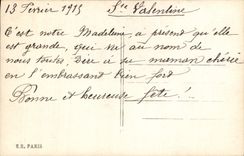 13 Février 1915 Ste Valentine
C'est notre Madeleine, à présent qu'elle
est grande, qui va au nom de
nous toutes, à sa maman chérie
en l'embrassant bien fort
Bonne et heureuse fête!
E.R. PARIS